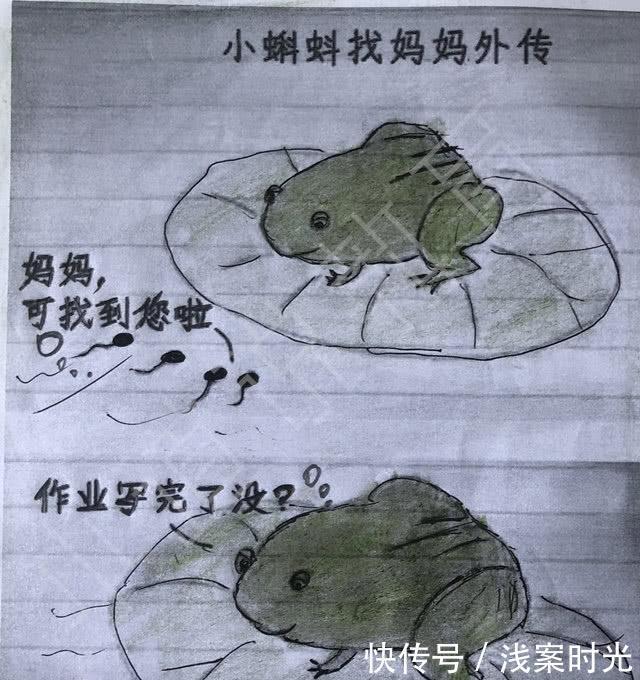 小蝌蚪找妈妈外传
妈妈,
可找到您啦
作业写完了没?
快传号 / 浅案时光